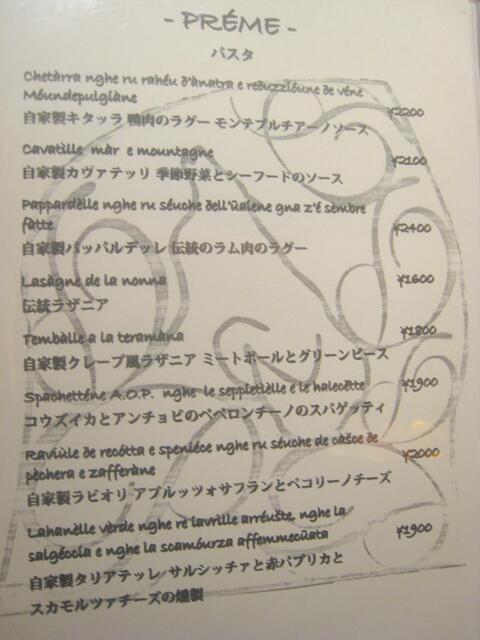 - PRÉME -
パスタ
Chetàrra nghe ru rahéu d'ànatra e reduzzióune de véne
Móundepulgiàne
¥2200
自家製キタッラ 鴨肉のラグー モンテプルチアーノソース
Cavatille màr e mountagne
¥2100
自家製カヴァテッリ 季節野菜とシーフードのソース
Pappardèlle nghe ru séuche dell'ûalene gna z'é sèmbre
fatte
¥2400
自家製パッパルデッレ 伝統のラム肉のラグー
Lasàgne de la nonna
¥1600
伝統ラザニア
Tembàlle a la teramàna
¥1800
自家製クレープ風ラザニア ミートボールとグリーンピース
Spachetténe A.O.P. nghe le seppletièlle e le halecètte
¥1900
コウズイカとアンチョビのペペロンチーノのスパゲッティ
Raviùle de recótta e speniéce nghe ru séuche de càšce de
pèchera e zafferàne
¥2000
自家製ラビオリ アブルッツォサフランとペコリーノチーズ
Lahanèlle vèrde nghe re lavrille arréušte, nghe la
salgéccia e nghe la scamóurza affemmecûata
¥1900
自家製タリアテッレ サルシッチャと赤パプリカと
スカモルツァチーズの燻製